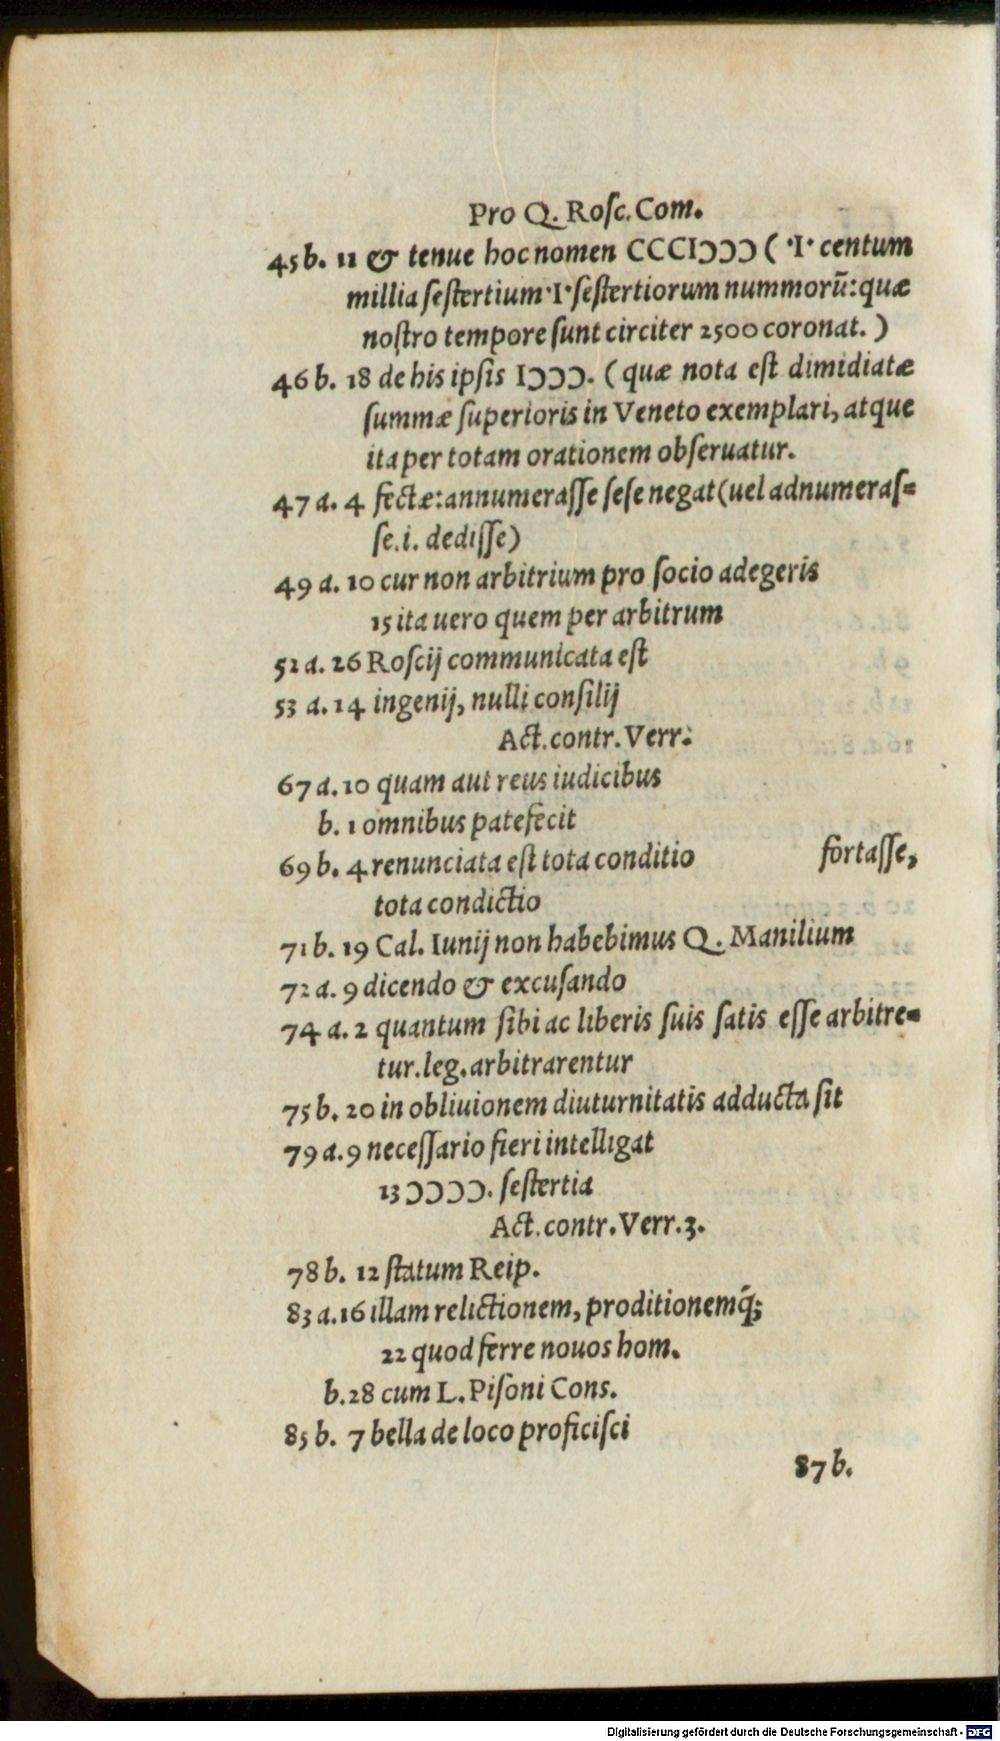 Pro Q. Roſc. Com.
45 b. 11 & tenue hoc nomen CCCIↃↃↃ ( ·I· centum
millia ſeſtertium ·I· ſeſtertiorum nummorũ: quæ
noſtro tempore ſunt circiter 2500 coronat. )
46 b. 18 de his ipſis IↃↃↃ. ( quæ nota eſt dimidiatæ
ſummæ ſuperioris in Veneto exemplari, atque
ita per totam orationem obſeruatur.
47 a. 4 fectæ: annumeraſſe ſeſe negat (uel adnumeraſ=
ſe .i. dediſſe)
49 a. 10 cur non arbitrium pro ſocio adegeris
15 ita uero quem per arbitrum
52 a. 26 Roſcij communicata eſt
53 a. 14 ingenij, nulli conſilij
Act. contr. Verr.
67 a. 10 quam aut reus iudicibus
b. 1 omnibus patefecit
69 b. 4 renunciata eſt tota conditio fortaſſe,
tota condictio
71 b. 19 Cal. Iunij non habebimus Q. Manilium
72 a. 9 dicendo & excuſando
74 a. 2 quantum ſibi ac liberis ſuis ſatis eſſe arbitre=
tur. leg. arbitrarentur
75 b. 20 in obliuionem diuturnitatis adducta ſit
79 a. 9 neceſſario fieri intelligat
13 ↃↃↃↃ. ſeſtertia
Act. contr. Verr. 3.
78 b. 12 ſtatum Reip.
83 a. 16 illam relictionem, proditionemq́;
22 quod ferre nouos hom.
b. 28 cum L. Piſoni Cons.
85 b. 7 bella de loco proficiſci
87 b.
Digitalisierung gefördert durch die Deutsche Forschungsgemeinschaft - DFG